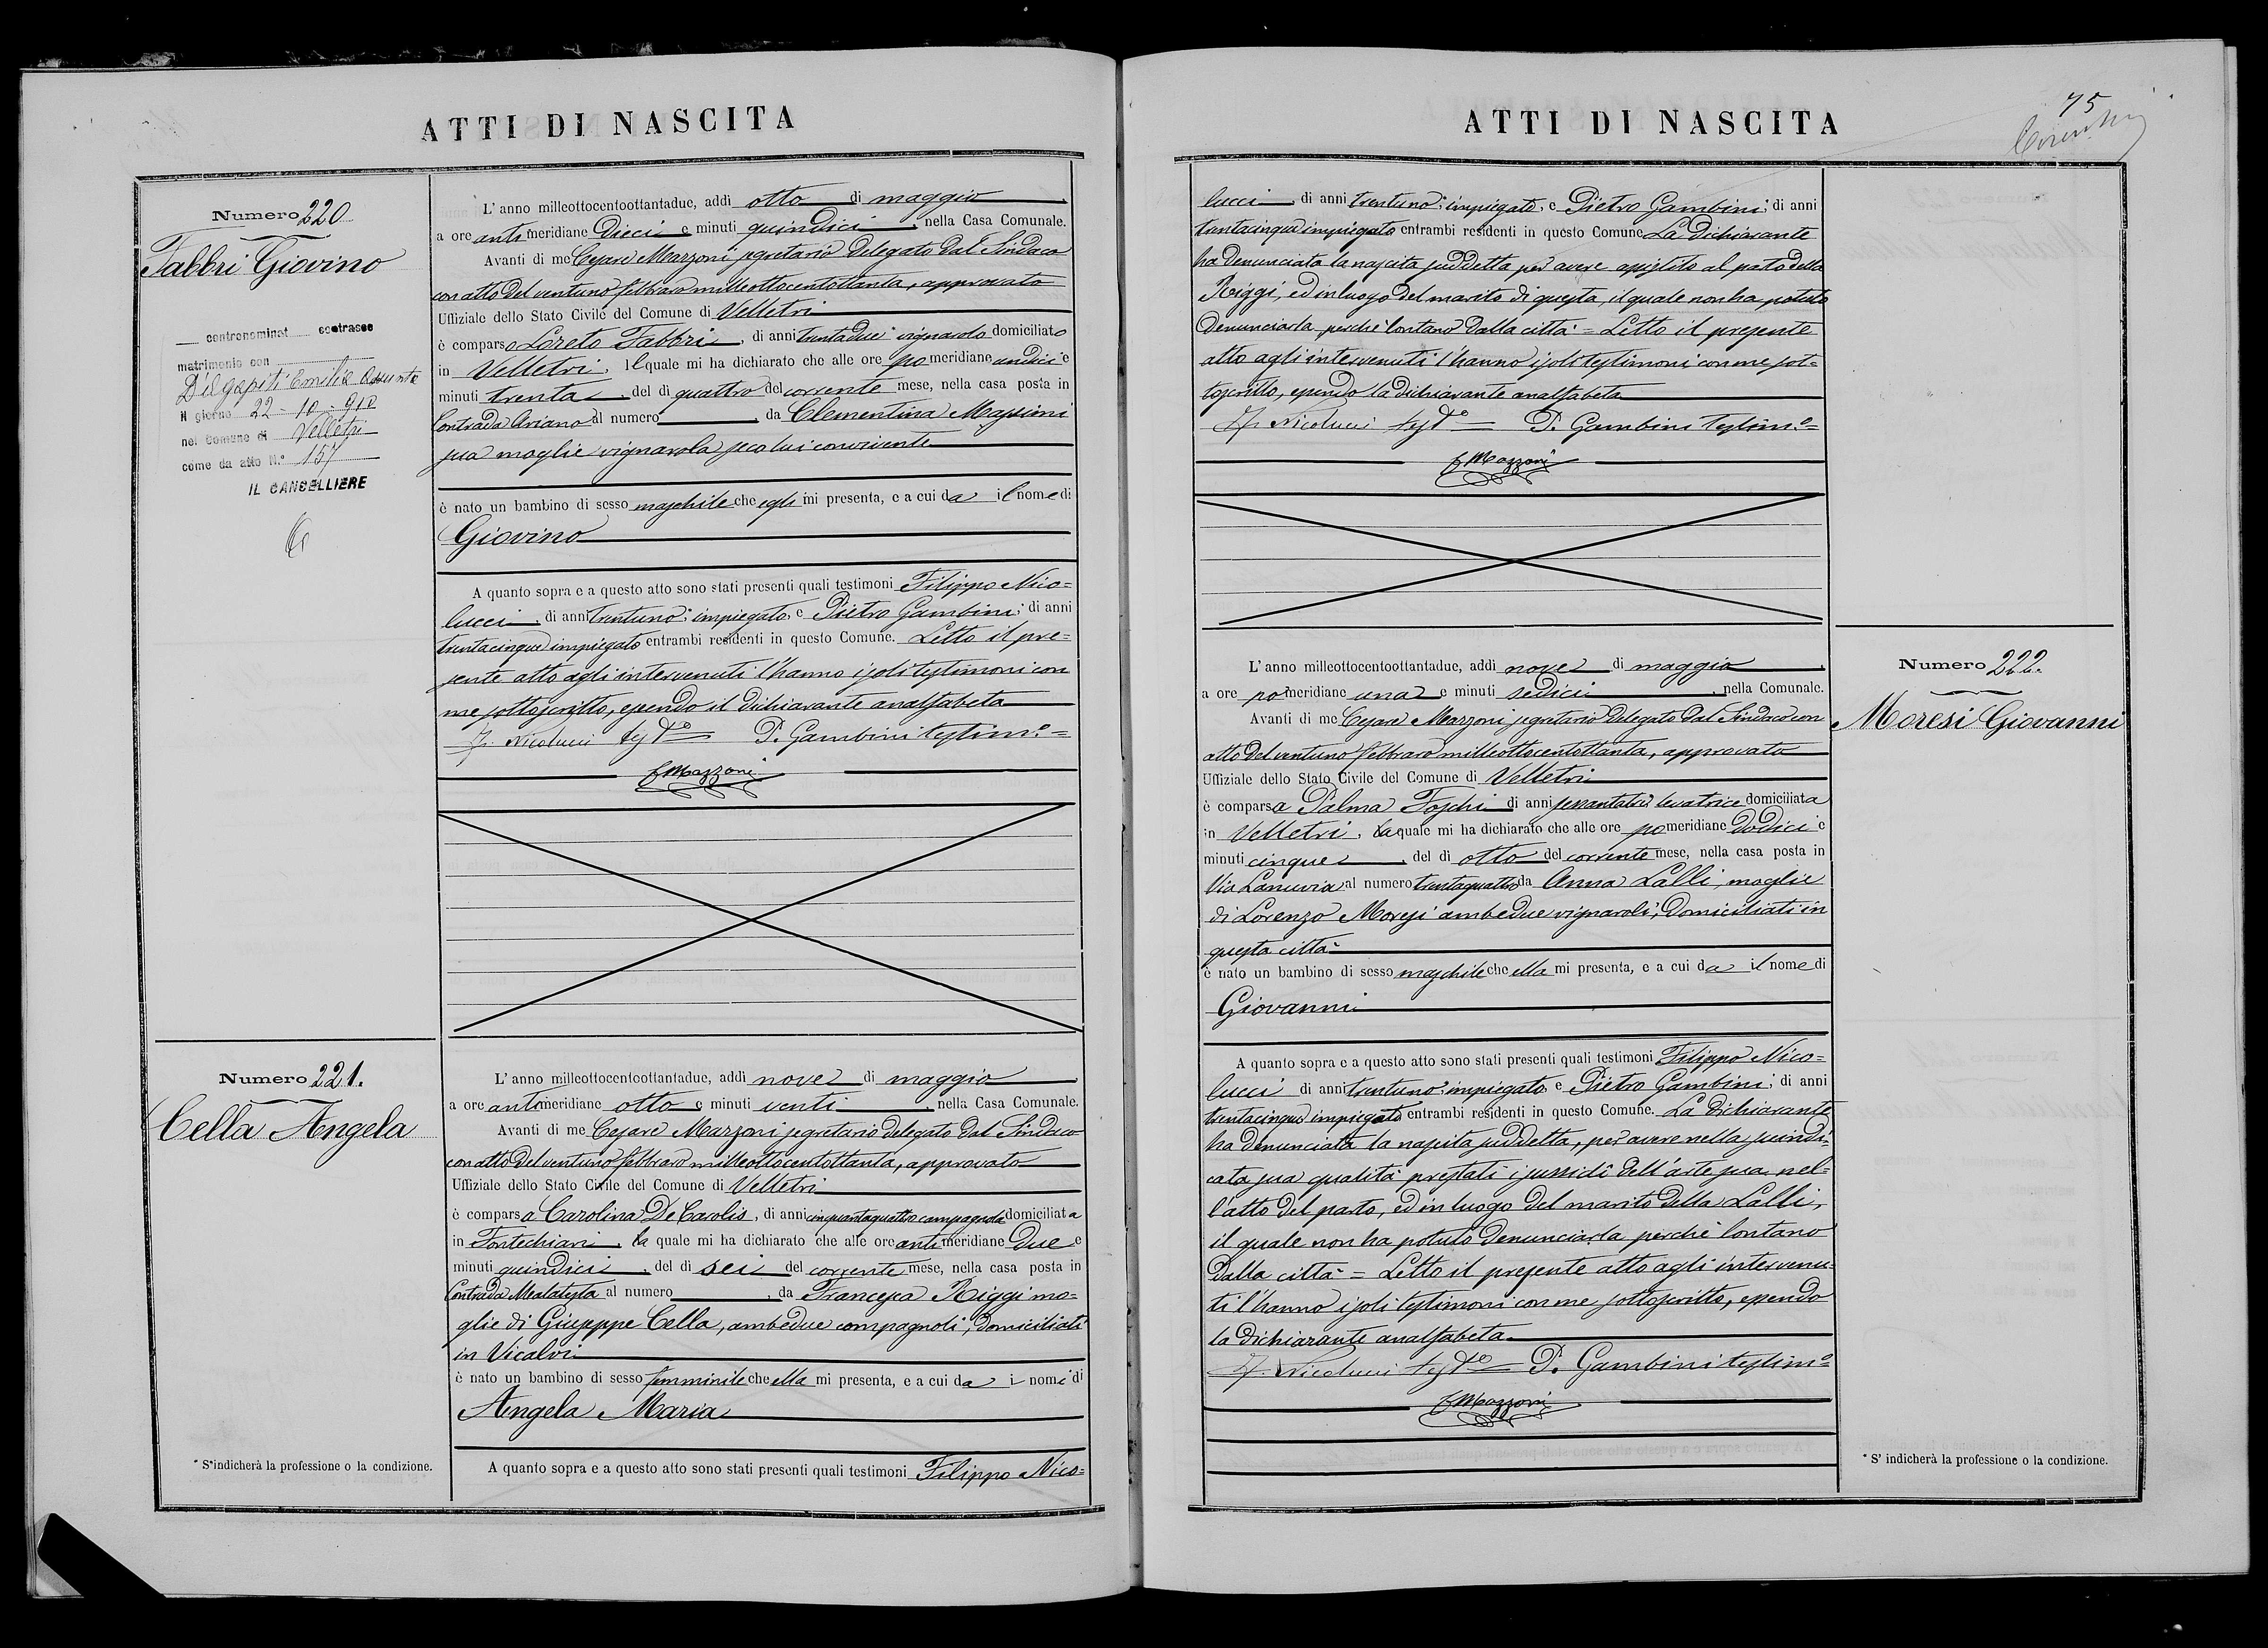 ATTI DI NASCITA
Numero 220
Fabbri Giovino
contronominat contrasse
matrimonio con
D'Agapiti Emilia Assunta
il giorno 22 - 10 - 910
nel Comune di Velletri
come da atto N.° 157
IL CANCELLIERE
L'anno milleottocentoottantadue, addì otto di maggio
a ore antimeridiane dieci e minuti quindici, nella Casa Comunale.
Avanti di me Cesare Mazzoni segretario delegato dal Sindaco
con atto del ventuno febbraro milleottocentottanta, approvato
Uffiziale dello Stato Civile del Comune di Velletri
è comparso Loreto Fabbri, di anni trentadue vignarolo domiciliato
in Velletri, il quale mi ha dichiarato che alle ore pomeridiane undici e
minuti trenta, del dì quattro del corrente mese, nella casa posta in
Contrada Ariano al numero da Clementina Massimi
sua moglie vignarola seco lui convivente
è nato un bambino di sesso maschile che egli mi presenta, e a cui da il nome di
Giovino
A quanto sopra e a questo atto sono stati presenti quali testimoni Filippo Nico=
lucci, di anni trentuno, impiegato, e Pietro Gambini, di anni
trentacinque impiegato entrambi residenti in questo Comune. Letto il pre=
sente atto agli intervenuti l'hanno i soli testimoni con
me sottoscritto, essendo il dichiarante analfabeta
F. Nicolucci test° P. Gambini testim.°=
C Mazzoni
Numero 221.
Cella Angela
L'anno milleottocentoottantadue, addì nove di maggio
a ore antimeridiane otto e minuti venti, nella Casa Comunale.
Avanti di me Cesare Mazzoni segretario delegato dal Sindaco
con atto del ventuno febbraro milleottocentottanta, approvato
Uffiziale dello Stato Civile del Comune di Velletri
è comparsa Carolina De Carolis, di anni cinquantaquattro campagnola domiciliata
in Fontechiari, la quale mi ha dichiarato che alle ore antimeridiane due e
minuti quindici, del dì sei del corrente mese, nella casa posta in
Contrada Malatesta al numero, da Francesca Riggi mo=
glie di Giuseppe Cella, ambedue campagnoli, domiciliati
in Vicalvi
è nato un bambino di sesso femminile che ella mi presenta, e a cui da i nomi di
Angela Maria
A quanto sopra e a questo atto sono stati presenti quali testimoni Filippo Nico=
* S'indicherà la professione o la condizione.
75
ATTI DI NASCITA
lucci, di anni trentuno, impiegato, e Pietro Gambini, di anni
trentacinque impiegato entrambi residenti in questo Comune La dichiarante
ha denunciata la nascita suddetta per avere assistito al parto della
Riggi, ed in luogo del marito di questa, il quale non ha potuto
denunciarla perchè lontano dalla città = Letto il presente
atto agli intervenuti l'hanno i soli testimoni con me sot=
toscritto, essendo la dichiarante analfabeta
F. Nicolucci test° P. Gambini testim.°=
C Mazzoni
Numero 222.
Moresi Giovanni
L'anno milleottocentoottantadue, addì nove di maggio
a ore pomeridiane una e minuti sedici, nella Comunale.
Avanti di me Cesare Mazzoni segretario delegato dal Sindaco con
atto del ventuno febbraro milleottocentottanta, approvato
Uffiziale dello Stato Civile del Comune di Velletri
è comparsa Palma Foschi di anni sessantatre levatrice domiciliata
in Velletri, la quale mi ha dichiarato che alle ore pomeridiane dodici e
minuti cinque, del dì otto del corrente mese, nella casa posta in
Via Lanuvia al numero trentaquattro da Anna Lalli, moglie
di Lorenzo Moresi ambedue vignaroli, domiciliati in
questa città
è nato un bambino di sesso maschile che ella mi presenta, e a cui da il nome di
Giovanni
A quanto sopra e a questo atto sono stati presenti quali testimoni Filippo Nico=
lucci di anni trentuno, impiegato e Pietro Gambini, di anni
trentacinque impiegato entrambi residenti in questo Comune. La dichiarante
ha denunciata la nascita suddetta, per avere nella suindi=
cata sua qualità prestati i sussidi dell'arte sua nel=
l'atto del parto, ed in luogo del marito della Lalli,
il quale non ha potuto denunciarla perchè lontano
dalla città = Letto il presente atto agli intervenu=
ti l'hanno i soli testimoni con me sottoscritto, essendo
la dichiarante analfabeta
F. Nicolucci test° P. Gambini testim°
C Mazzoni
* S' indicherà la professione o la condizione.